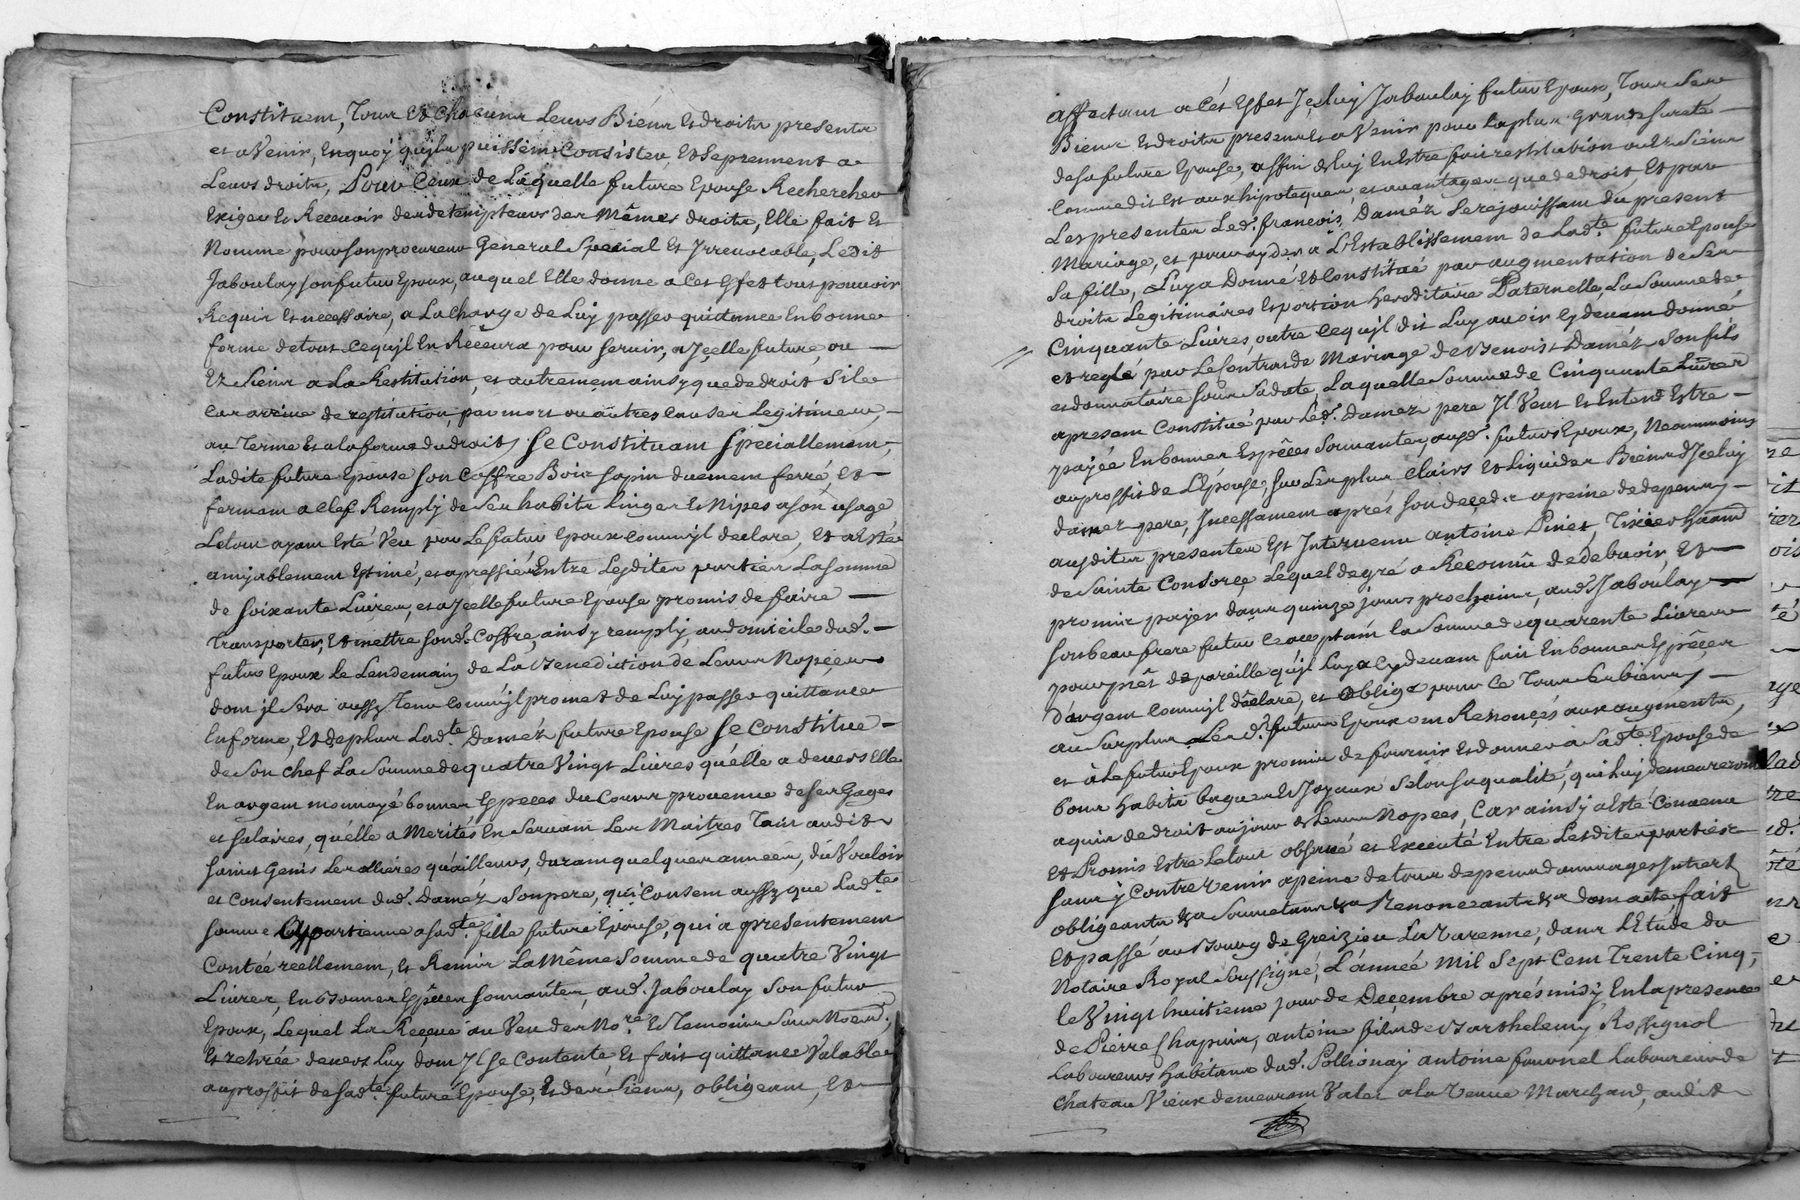 Constituent, Tous Et chacuns Leurs Biens Et droits presents
et a Venir, Enquoÿ qu'jls puissent Consister, Et Se prennent a
Leurs droits, Pour Ceux de Laquelle future Epouse Rechercher
Exiger Et Recevoir des detempteurs des Mêmes droits, Elle fait Et
Nomme pour son procureur General Special Et Jrrevocable, Ledit
Jaboulay son futur Epoux, auquel Elle donne a Cet Effet tout pouvoir
Requis Et necessaire, a La charge de Luy passer quittance En bonne
forme de tout Ce qu'jl En Recevra pour Servir, a Jcelle future, ou
Et Siens a La Restitution, et autrement ainsy que de droit Si le
Cas arrive de restitution, par mort ou autres Causes Legitimes,
au Terme Et a la forme du droit, Se Constituant Speciallement,
Ladite future Epouse Son Coffre Bois Sapin duement ferré, Et
fermant a clef Remplÿ de Ses habits Linges Et Nipes a son usage
Letout ayant Esté Veu par Le futur Epoux comm'jl declare, Et a Esté
amiablement Estimé, et apressié Entre Lesdites parties La somme
de Soixante Livres, et a Jcelle future Epouse promis de faire
Transporter, Et mettre Sond.t Coffre, ainsy remplÿ, au domicile dud.t
futur Epoux le Lendemain de La Benediction de Leurs Nopces
dont jl Sera aussy Tenu Comm'jl promet de Luy passer quittance
En forme, Et de plus Lad.te Daméz future Epouse Se Constitue
de Son chef La Somme de quatre Vingt Livres qu'elle a devers Elle
En argent monnoyé bonnes Especes du Cours provenue de Ses Gages
et Salaires, qu'elle a Merités En Servant Les Maitres Tant audit
Saint Genis Les ollieres qu'ailleurs, durant quelques années, du Vouloir
et Consentement dud.t Daméz Son pere, qui Consent aussy que Lad.te
Somme Appartienne a Sad.te fille future Epouse, qui a presentement
Contée reellement, et Remis La Même Somme de quatre Vingt
Livres, En Bonnes Especes Sonnantes, aud.t Jaboulay Son futur
Epoux, Lequel La Reçue au Veu des No.re Et Temoins Sous Nom.
Et retirée devers Luy dont Jl Se Contente Et fait quittance Valable
au proffit de Sad.te future Epouse, Et des Siens, obligeant, Et
affectant a Cét Effet Jceluy Jaboulay futur Epoux, Tous Ses
Biens Et droits presents et a Venir pour La plus Grande Sureté
de Sa future Epouse, affin de Luy En Estre fait restitution ou Et Siens
Comme dit Est aux hipoteques, et avantages que de droit, Et par
Les presentes Led.t francois Daméz Se rejouissant du present
Mariage, et pourvoyant a L'Establissement de Lad.te future Epouse
Sa fille, Luy a Donné Et Constitué par augmentation de Ses
droits Legitimaires Et portion Hereditaire Paternelle, La Somme de
Cinquante Livres outre Ce qu'jl dit Luy avoir cy devant donné
et reglé par Le Contrat de Mariage de Benoist Daméz Son fils
et donnataire pour Sa dote, Laquelle Somme de Cinquante Livres
apresent Constitué par Led.t Daméz pere Jl Veut Et Entend Estre
payée En bonnes Espêces Sonnantes, ausd.t futurs Epoux, Neammoins
au proffit de L'Epouse, Sur Les plus clairs Et Liquides Biens d'Jceluy
Daméz pere, Jncessament aprés Son decedz a peine de depens,
ausdites presentes Est Jntervenu antoine Pinet, Tixier habitant
de Sainte Consorçe Lequel de gré a Reconnû de debvoir, Et
promis payer dans quinze jours prochains, aud.t Jaboulay
Son beau frere futur ce acceptant la Somme de quarente Livres
pour prêt de pareille qu'jl Luy a cy devant fait En bonnes Espêces
d'argent comm'jl déclare, et oblige pour ce Tous Ses biens,
au Surplus Lesd.t futurs Epoux ont Renonçés aux augments,
et a Le futur Epoux promis de fournir Et donner a Sad.te Epouse de
bons habits bagues Et Joyaux Selon Sa qualité, qui Luy demeureront
aquis de droit au jour de Leurs Nopces, Car ainsÿ a Esté Convenu
Et Promis Estre Letout observé et Executé Entre Lesdites parties
Sans ÿ Contrevenir a peine de tous depens dommages Jnterets
obligeants &a Soumetants &a Renonceants &a dont acte fait
Et passé au Bourg de Greizieu La Varenne, dans L'Etude du
Notaire Royal Soussigné, L'année Mil Sept Cent Trente Cinq,
le Vingt huitieme jour de Decembre aprés midy, En la presence
de Pierre Chapuis, antoine fils de Barthelemy Rossignol
Laboureurs habitans dud.t Pollionaÿ antoine founel Laboureur de
Chateau Vieux demeurant Valet a la Veuve Marchand, audit